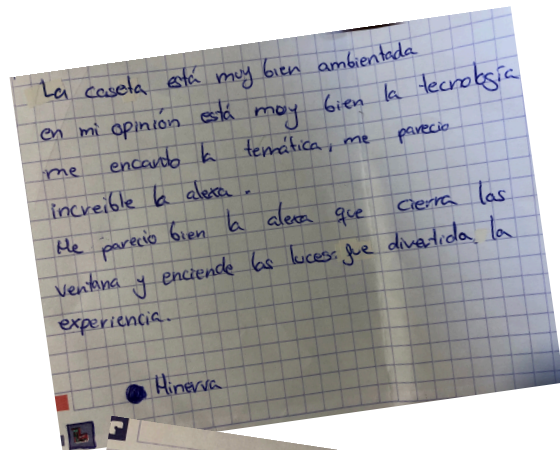 La caseta está muy bien ambientada
en mi opinión está muy bien la tecnología
me encanto la temática, me parecio
increible la alexa.
Me parecio bien la alexa que cierra las
ventana y enciende las luces. fue divertida la
experiencia.
Minerva